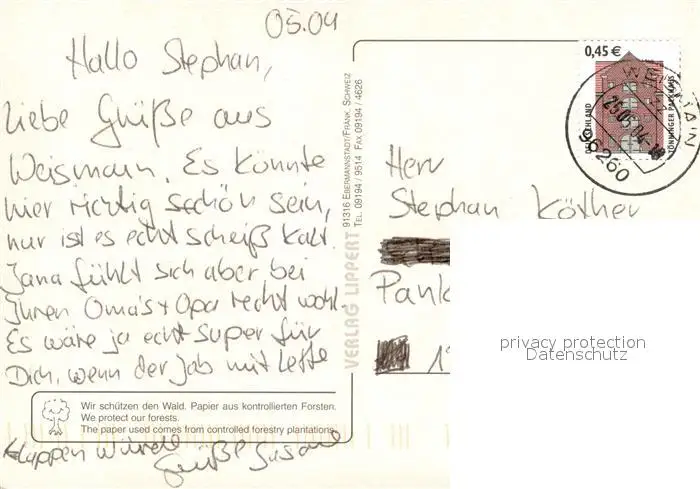 05.04
Hallo Stephan,
Liebe Grüße aus
Weismain. Es könnte
hier richtig schön sein,
nur ist es echt scheiß kalt.
Jana fühlt sich aber bei
Ihren Oma's + Opa recht wohl.
Es wäre ja echt super für
Dich, wenn der Job mit Lette
klappen würde
Grüße Susanne
Wir schützen den Wald. Papier aus kontrollierten Forsten.
We protect our forests.
The paper used comes from controlled forestry plantations.
VERLAG LIPPERT
91316 EBERMANNSTADT/FRÄNK. SCHWEIZ
TEL. 09194 / 9514 FAX 09194 / 4626
0,45 €
DEUTSCHLAND
TÖNNINGER PACKHAUS
WEISMAIN
25.05.04
96260
Herr
Stephan Köther
Pank
privacy protection
Datenschutz